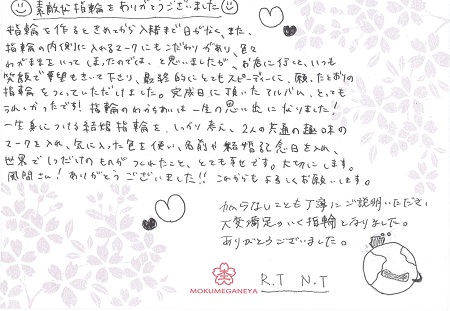 素敵な指輪をありがとうございました
指輪を作るときめてから入籍まで日がなく、また、
指輪の内側に入れるマークにもこだわりがあり、色々
わがままをいってしまったのでは、と思いましたが、お店に行くと、いつも
笑顔で要望もきいて下さり、最終的にとてもスピーディーに、願ったとおりの
指輪をつくっていただけました。完成日に頂いたアルバム、とっても
うれしかったです! 指輪のわかちあいは一生の思い出になりました!
一生身につける結婚指輪を、しっかり考え、2人の共通の趣味の
マークを入れ、気に入った色を使い、名前や結婚記念日を入れ、
世界で1つだけのものがつくれたこと、とても幸せです。大切にします。
風間さん! ありがとうございました!! これからもよろしくお願いします。
わからないことも丁寧にご説明いただき、
大変満足のいく指輪となりました。
ありがとうございました。
MOKUMEGANEYA
R.T N.T